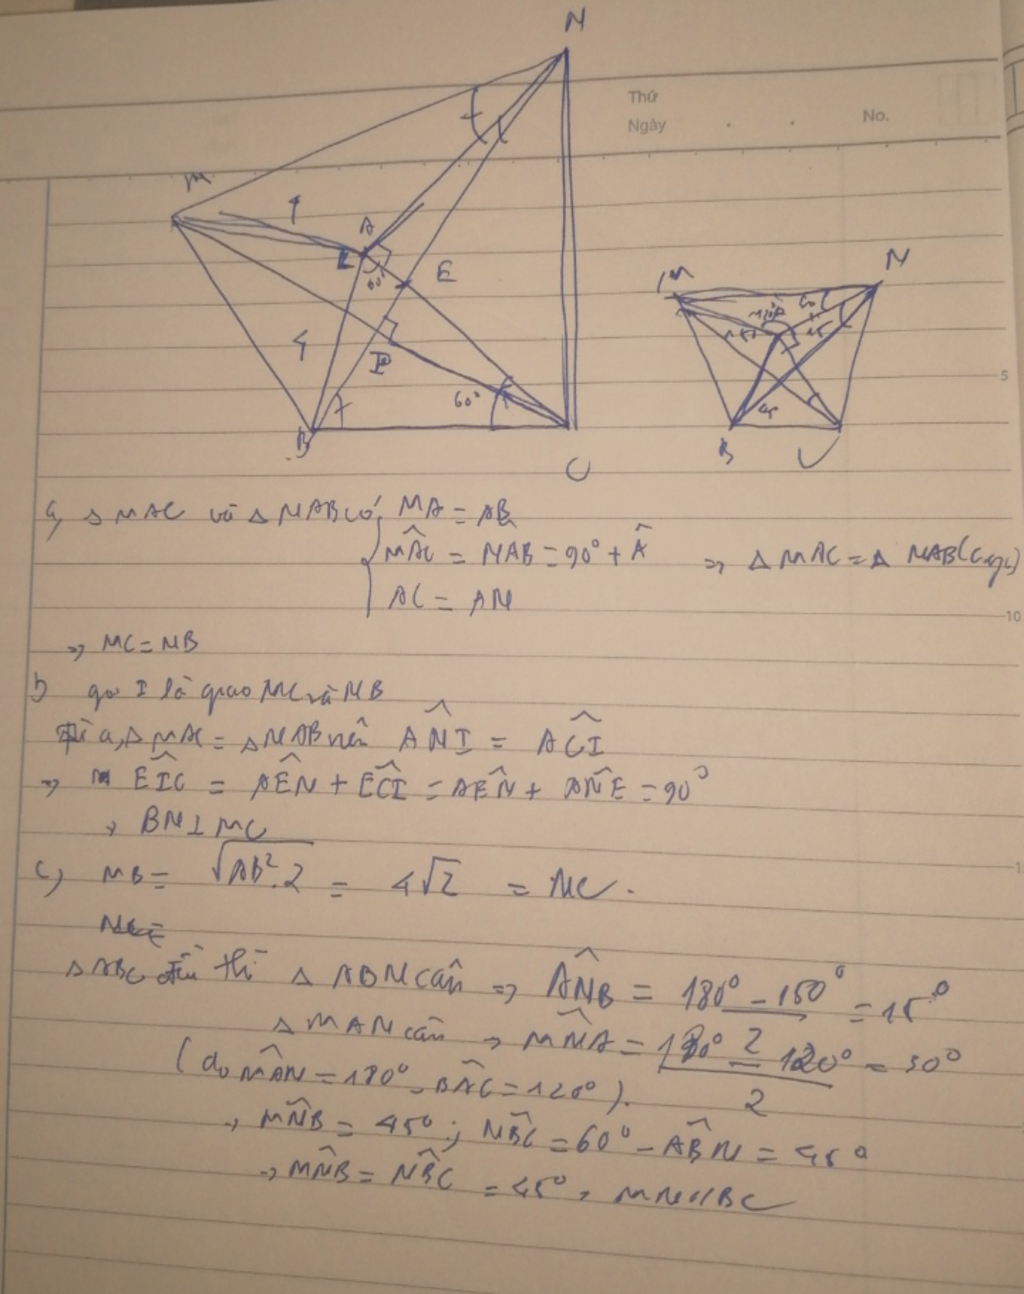 N
Thứ
Ngày
No.
M
4
A
E
60°
4
60°
B
C
M
N
120°
15
45
B
5
a, Δ MAC và Δ NAB có: MA = AB
MAC^ = NAB^ = 90° + A^ => Δ MAC = Δ NAB (c.g.c)
AC = AN
10
=> MC = NB
b gọi I là giao MC và NB
Từ a, Δ MAC = Δ NAB nên ANI^ = ACI^
=> EIC^ = AEN^ + ECI^ = AEN^ + ANE^ = 90°
→ BN ⊥ MC
c) MB = √AB².2 = 4√2 = NC.
Δ ABC đều thì Δ ABN cân => ANB^ = (180° - 150°)/2 = 15°
Δ MAN cân → MNA^ = (180° - 120°)/2 = 30°
(do MAN^ = 180° - BAC^ = 120°).
→ MNB^ = 45° ; NBC^ = 60° - ABN^ = 45°
→ MNB^ = NBC^ = 45° , MN // BC